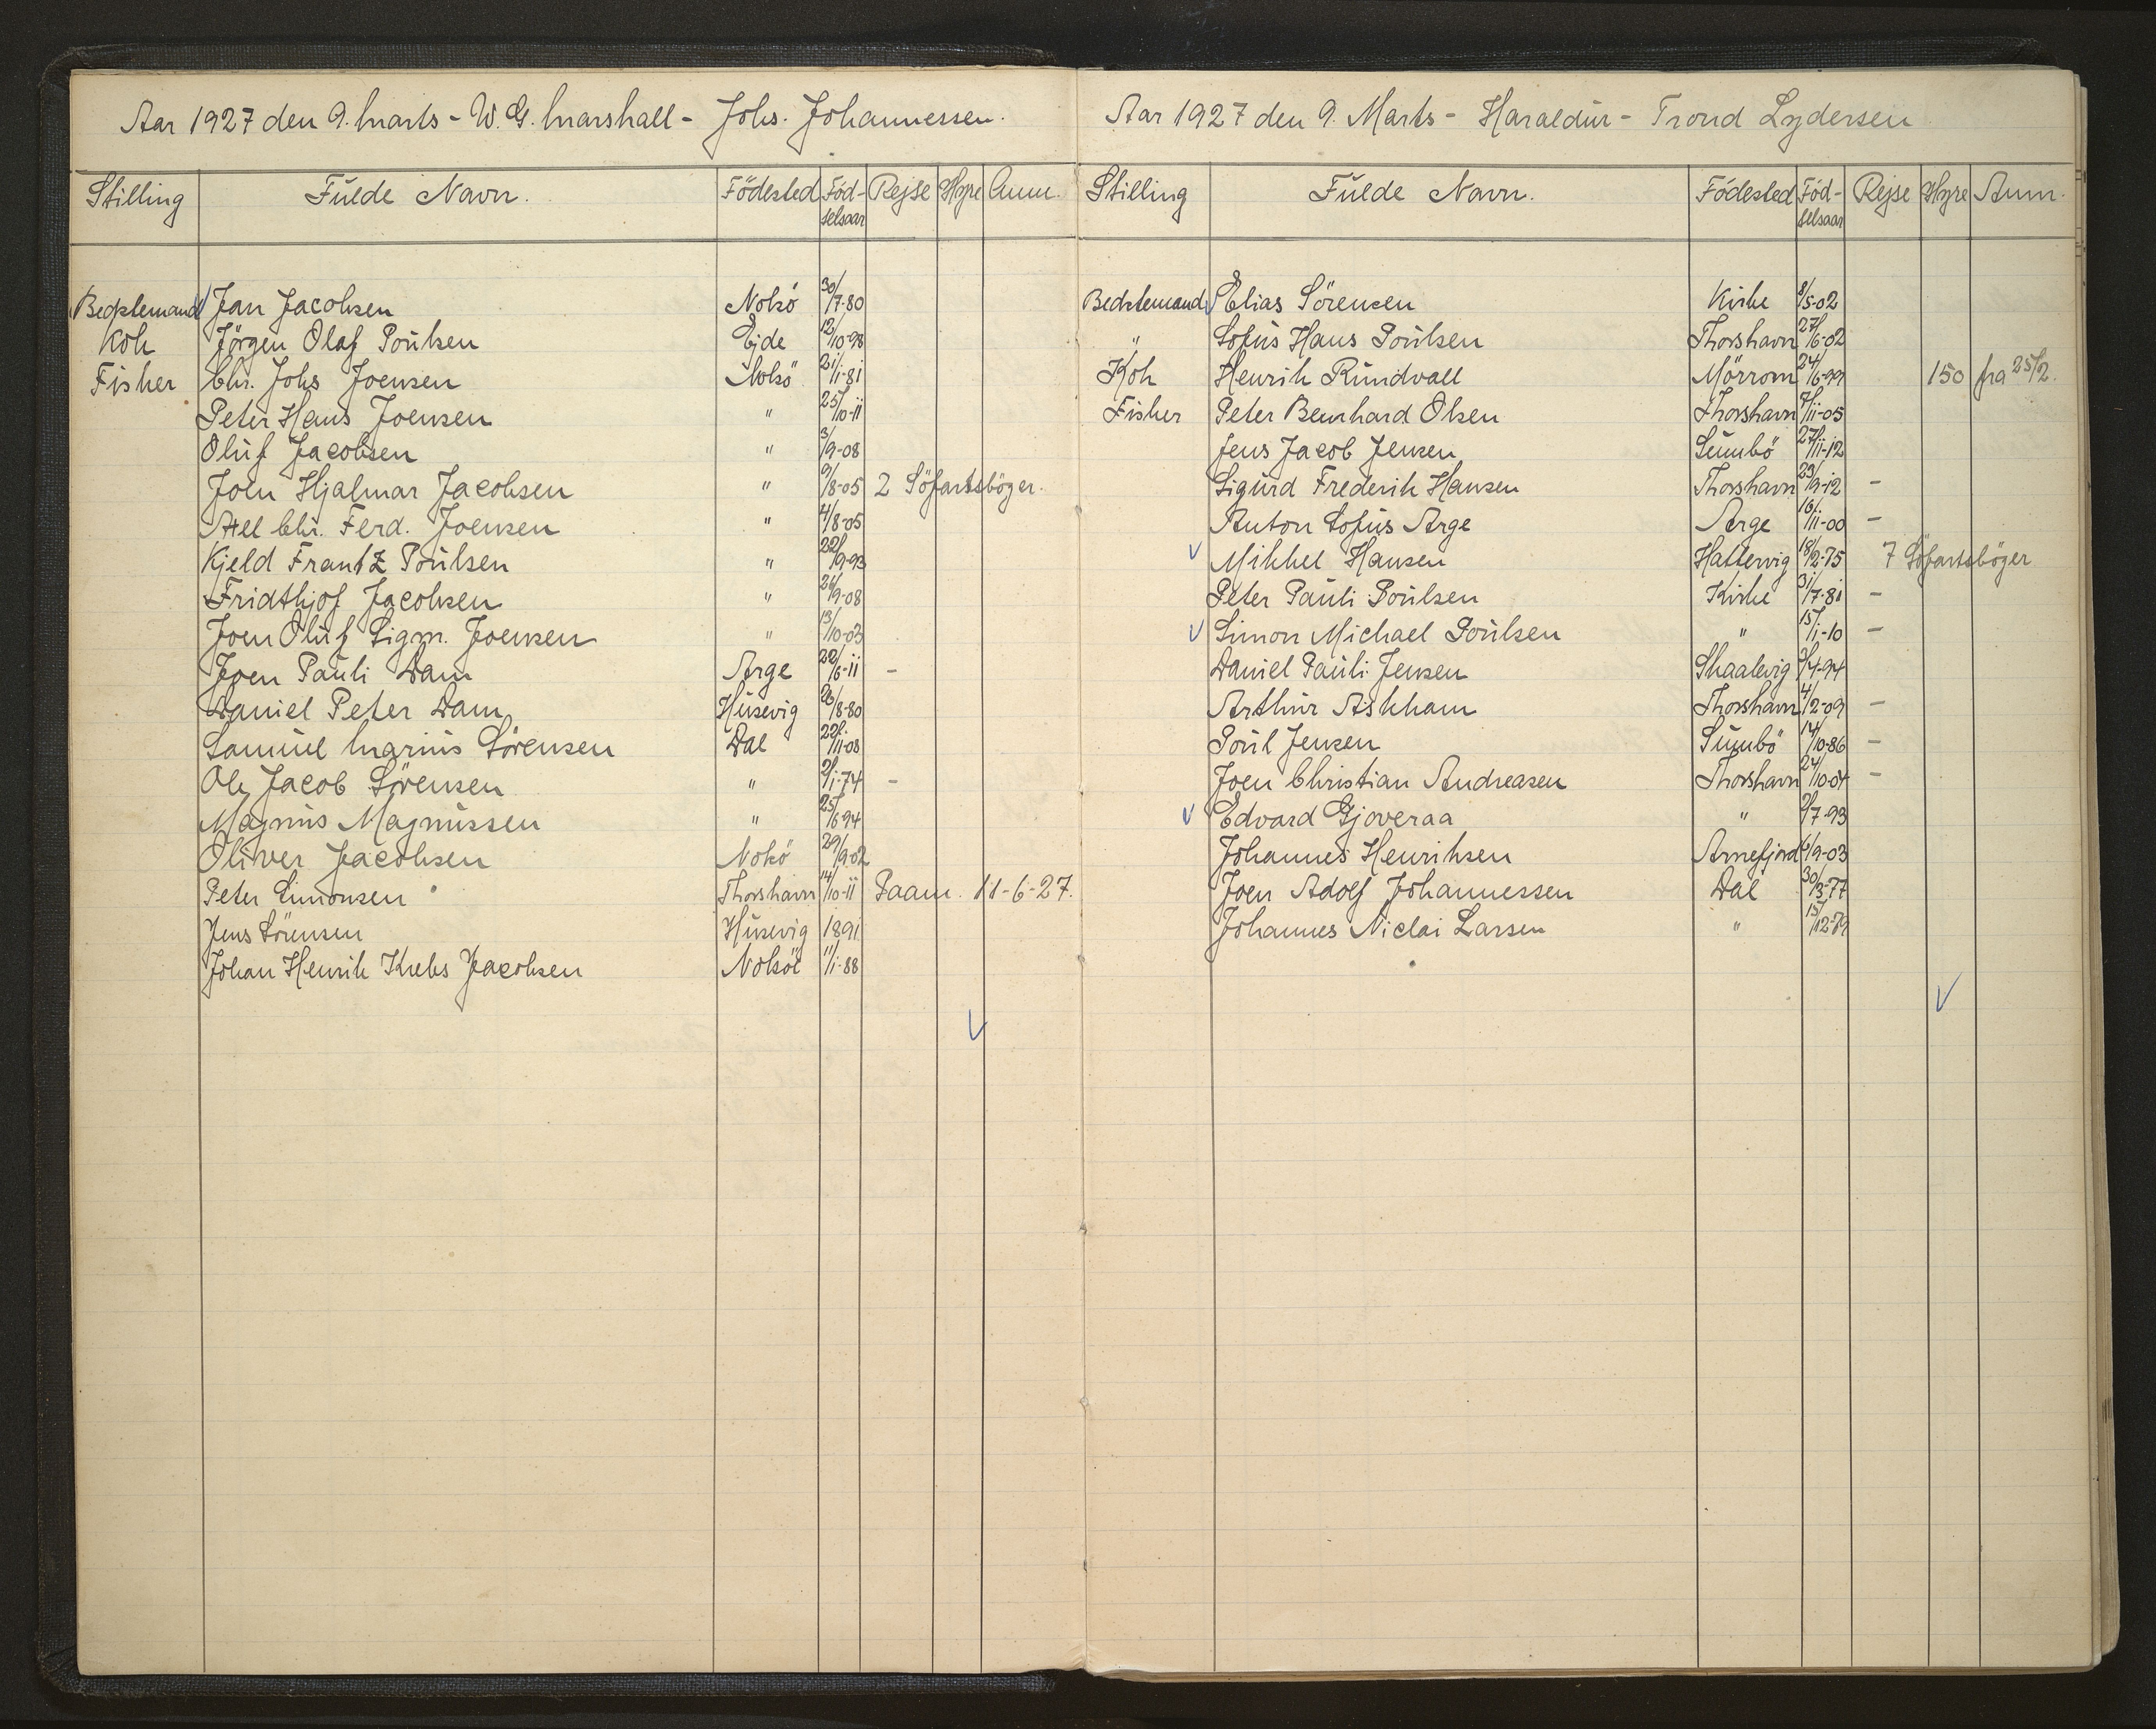 Aar 1927 den 9. Marts - W. G. Marshall - Johs. Johannessen.
Stilling Fulde Navn. Födested Föd- Rejse Hyre Anm.
selsaar
Bedstemand Jan Jacobsen Nolsö 30/7-80
Kok Jörgen Olaf Poulsen Ejde 12/10-98
Fisker Chr. Johs Joensen Nolsö 21/11-81
Peter Hans Joensen " 25/10-11
Oluf Jacobsen " 3/9-08
Joen Hjalmar Jacobsen " 9/8-05 2 Söfartsböger.
Chr. Ferd. Joensen " 4/8-05
Kjeld Frantz Poulsen " 22/9-93
Fridthjof Jacobsen " 9-08
Joen Oluf Sigm. Joensen " 13/10-03
Joen Pauli Dam Arge 22/6-11 -
Daniel Peter Dam Husevig 26/8-80
Samuel Marius Sörensen Dal 22/11-08
Ole Jacob Sörensen " 2/1-74 -
Magnus Magnussen " 25/6 94
Oliver Jacobsen Nolsö 29/9-02
Peter Simonsen Thorshavn 14/10-11 Paam. 11-6-27.
Jens Sörensen Husevig 1891
Johan Henrik Krebs Jacobsen Nolsö 11/1-88
Aar 1927 den 9. Marts - Haraldur - Trond Lydersen
Stilling Fulde Navn. Födested Föd- Rejse Hyre Anm.
selsaar
Bedstemand Elias Sörensen Kirke 8/5-02
" Sofus Hans Poulsen Thorshavn 27/6-02
Kok Henrik Rundvall Mörrom 24/6-99 150 fra 25/2.
Fisker Peter Bernhard Olsen Thorshavn 7/11-05
Jens Jacob Jensen Sumbö 27/11-12
Sigurd Frederik Hansen Thorshavn 23/9-12 -
Anton Sofus Arge Arge 16/11-00 -
Mikkel Hansen Hattervig 18/2-75 7 Söfartsböger
Peter Pauli Poulsen Kirke 31/7-81 -
Simon Michael Poulsen " 15/1-10 -
Daniel Pauli Jensen Skaalevig 4-94
Arthur Askham Thorshavn 4/2-09 -
Poul Jensen Sumbö 14/10-86 -
Joen Christian Andreasen Thorshavn 24/10-04 -
Edvard Gjoveraa " 2/7-93
Johannes Henriksen Arnefjord 6/9-03
Joen Adolf Johannessen Dal 30/3-77
Johannes Niclai Larsen " 15/12-79